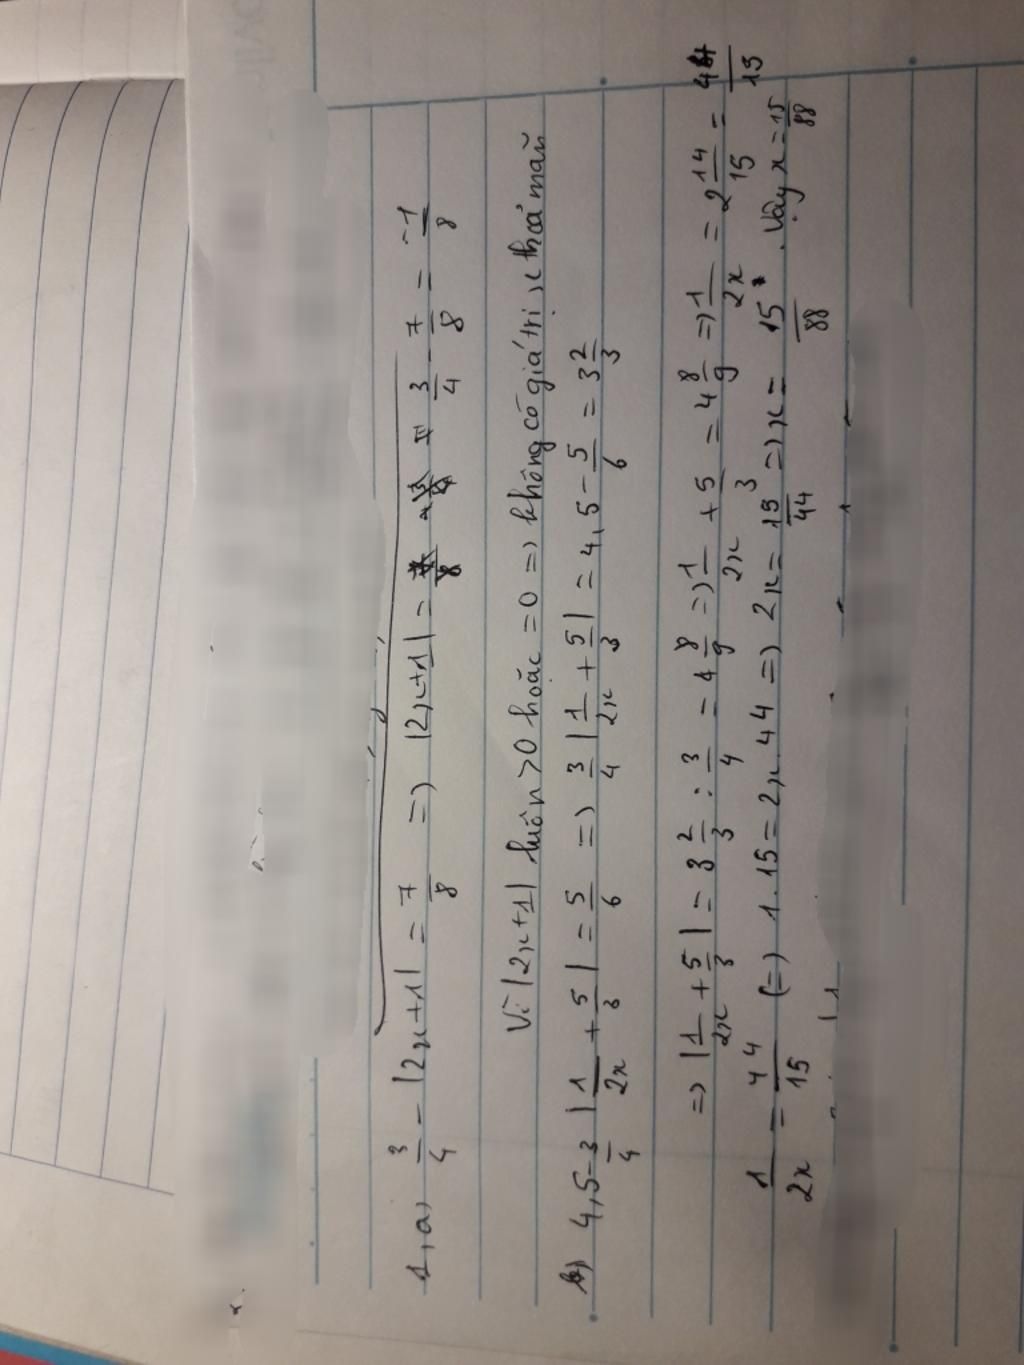 1, a) 3/4 - |2x+1| = 7/8 => |2x+1| = 3/4 - 7/8 = -1/8
Vì |2x+1| luôn >0 hoặc =0 => không có giá trị x thoả mãn
b) 4,5 - 3/4 |1/2x + 5/3| = 5/6 => 3/4 |1/2x + 5/3| = 4,5 - 5/6 = 3 2/3
=> |1/2x + 5/3| = 3 2/3 : 3/4 = 4 8/9 => 1/2x + 5/3 = 4 8/9 => 1/2x = 2 14/15 = 44/15
1/2x = 44/15 (=) 1.15 = 2x.44 => 2x = 15/44 => x = 15/88. Vậy x = 15/88